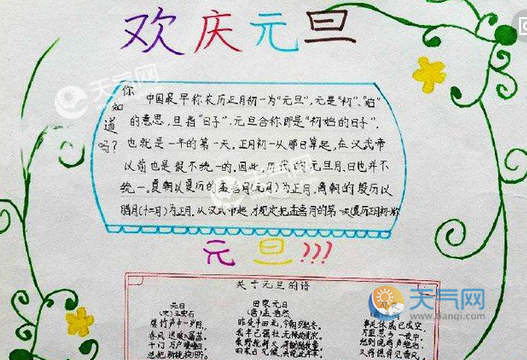 欢庆元旦
你知道吗?
中国最早称农历正月初一为"元旦",元是"初"、"始"
的意思,旦指"日子",元旦合称即是"初始的日子",
也就是一年的第一天。正月初一从哪日算起,在汉武帝
以前也是很不统一的。因此,历代的元旦月、日也并不
统一。夏朝以夏历的孟喜月(元月)为正月,商朝的殷历以
腊月(十二月)为正月,从汉武帝起,才规定把孟喜月的第一天(夏历正月初一)
元旦???
关于元旦的诗
元日
(宋)王安石
爆竹声中一岁除,
春风送暖入屠苏。
千门万户曈曈日,
总把新桃换旧符。
田家元日
(唐)孟浩然
昨夜斗回北,今朝岁起东。
我年已强仕,无禄尚忧农。
天气网
www.tianqi.com